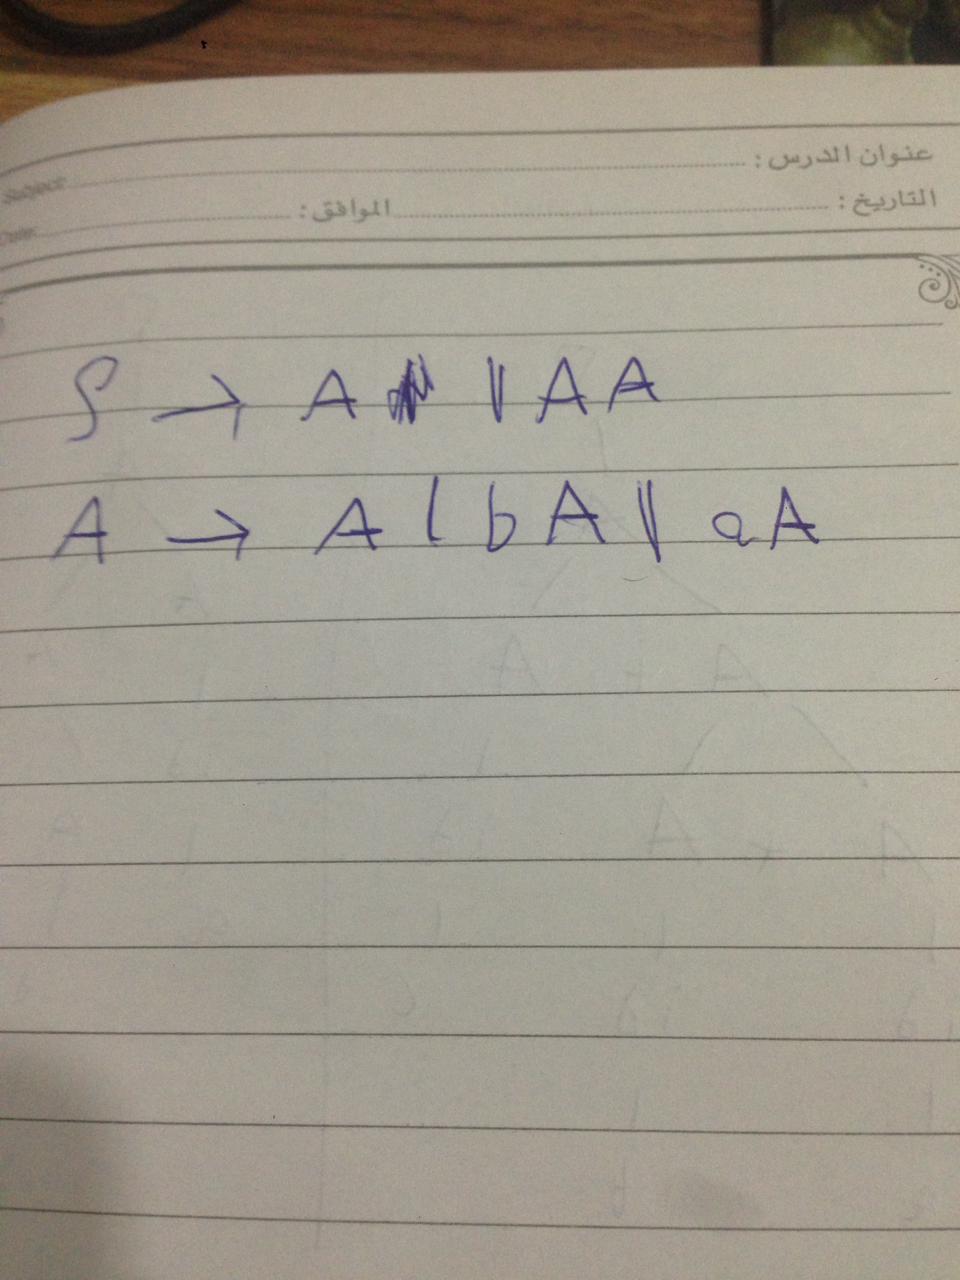 عنوان الدرس :
Subject:
التاريخ : الموافق :
Date:
S → A || AA
A → A | bA || aA